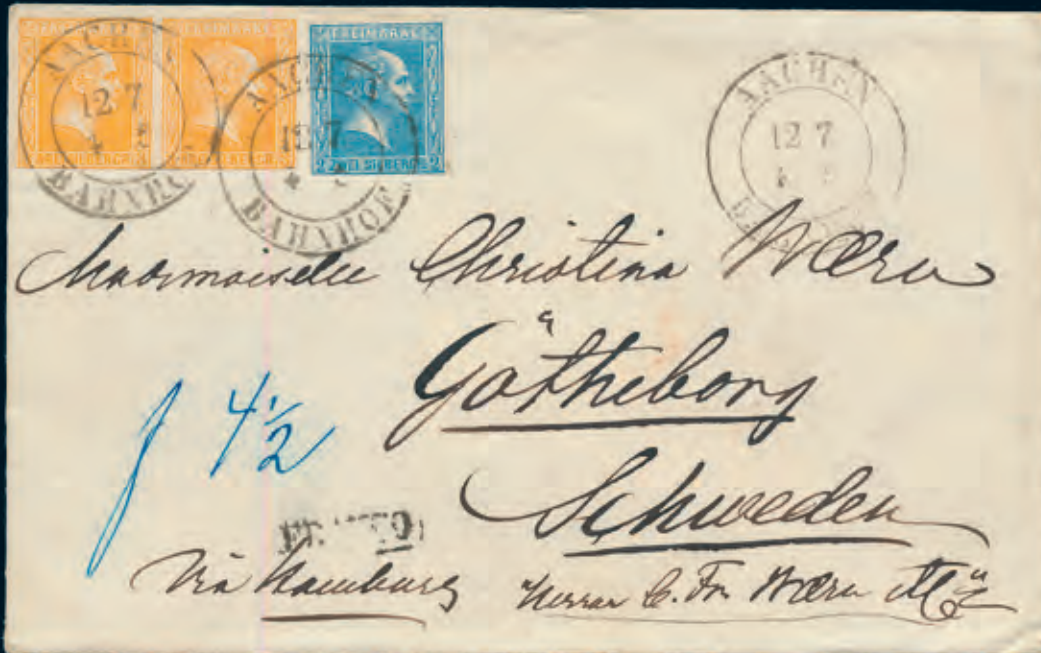 FREIMARKE
FREIMARKE
FREIMARKE
DREI SILBERGR.
DREI SILBERGR.
2 ZWEI SILBERGR. 2
AACHEN
12 7
BAHNHOF
AACHEN
12 7
BAHNHOF
AACHEN
12 7
Mademoiselle Christina Wærn
à
Götheborg
Schweden
f 4 1/2
FRANCO
Via Hamburg
Herrar C. Fr. Wærn &